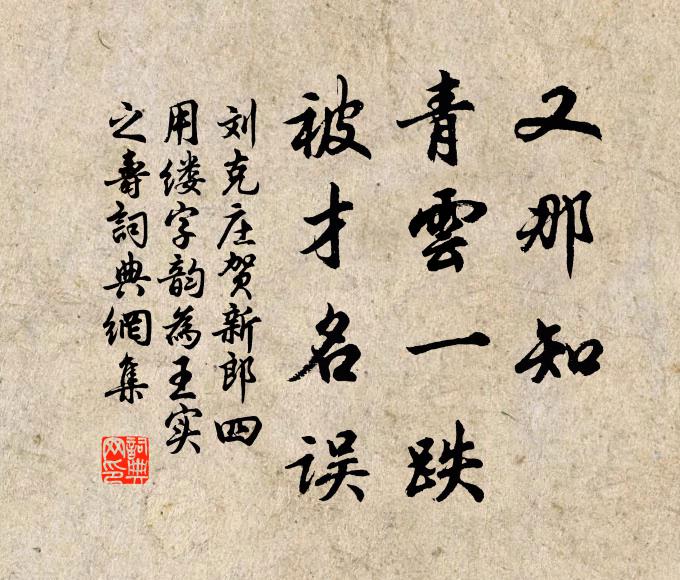 又那知
青雲一跌
被才名误
刘克庄贺新郎四
用缕字韵為王实
之壽詞典網集
詞典网印